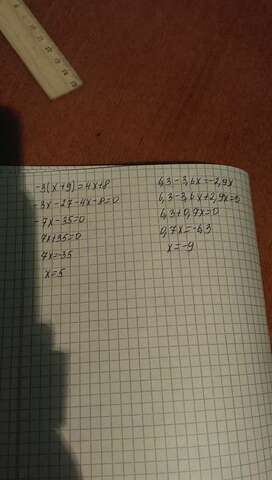 -3(x+9)=4x+8
-3x-27-4x-8=0
-7x-35=0
7x+35=0
7x=-35
x=5
6,3-3,6x=-2,9x
6,3-3,6x+2,9x=0
6,3+0,7x=0
0,7x=-6,3
x=-9